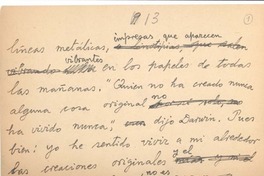 13
1
impresas, que aparecen
líneas metálicas,
vibrantes
en los papeles de todas
las mañanas. "Quien no ha creado nunca
alguna cosa original no
ha vivido nunca", dijo Darwin. Pues
bien: yo he sentido vivir a mi alrededor
y el
las creaciones originales
no es